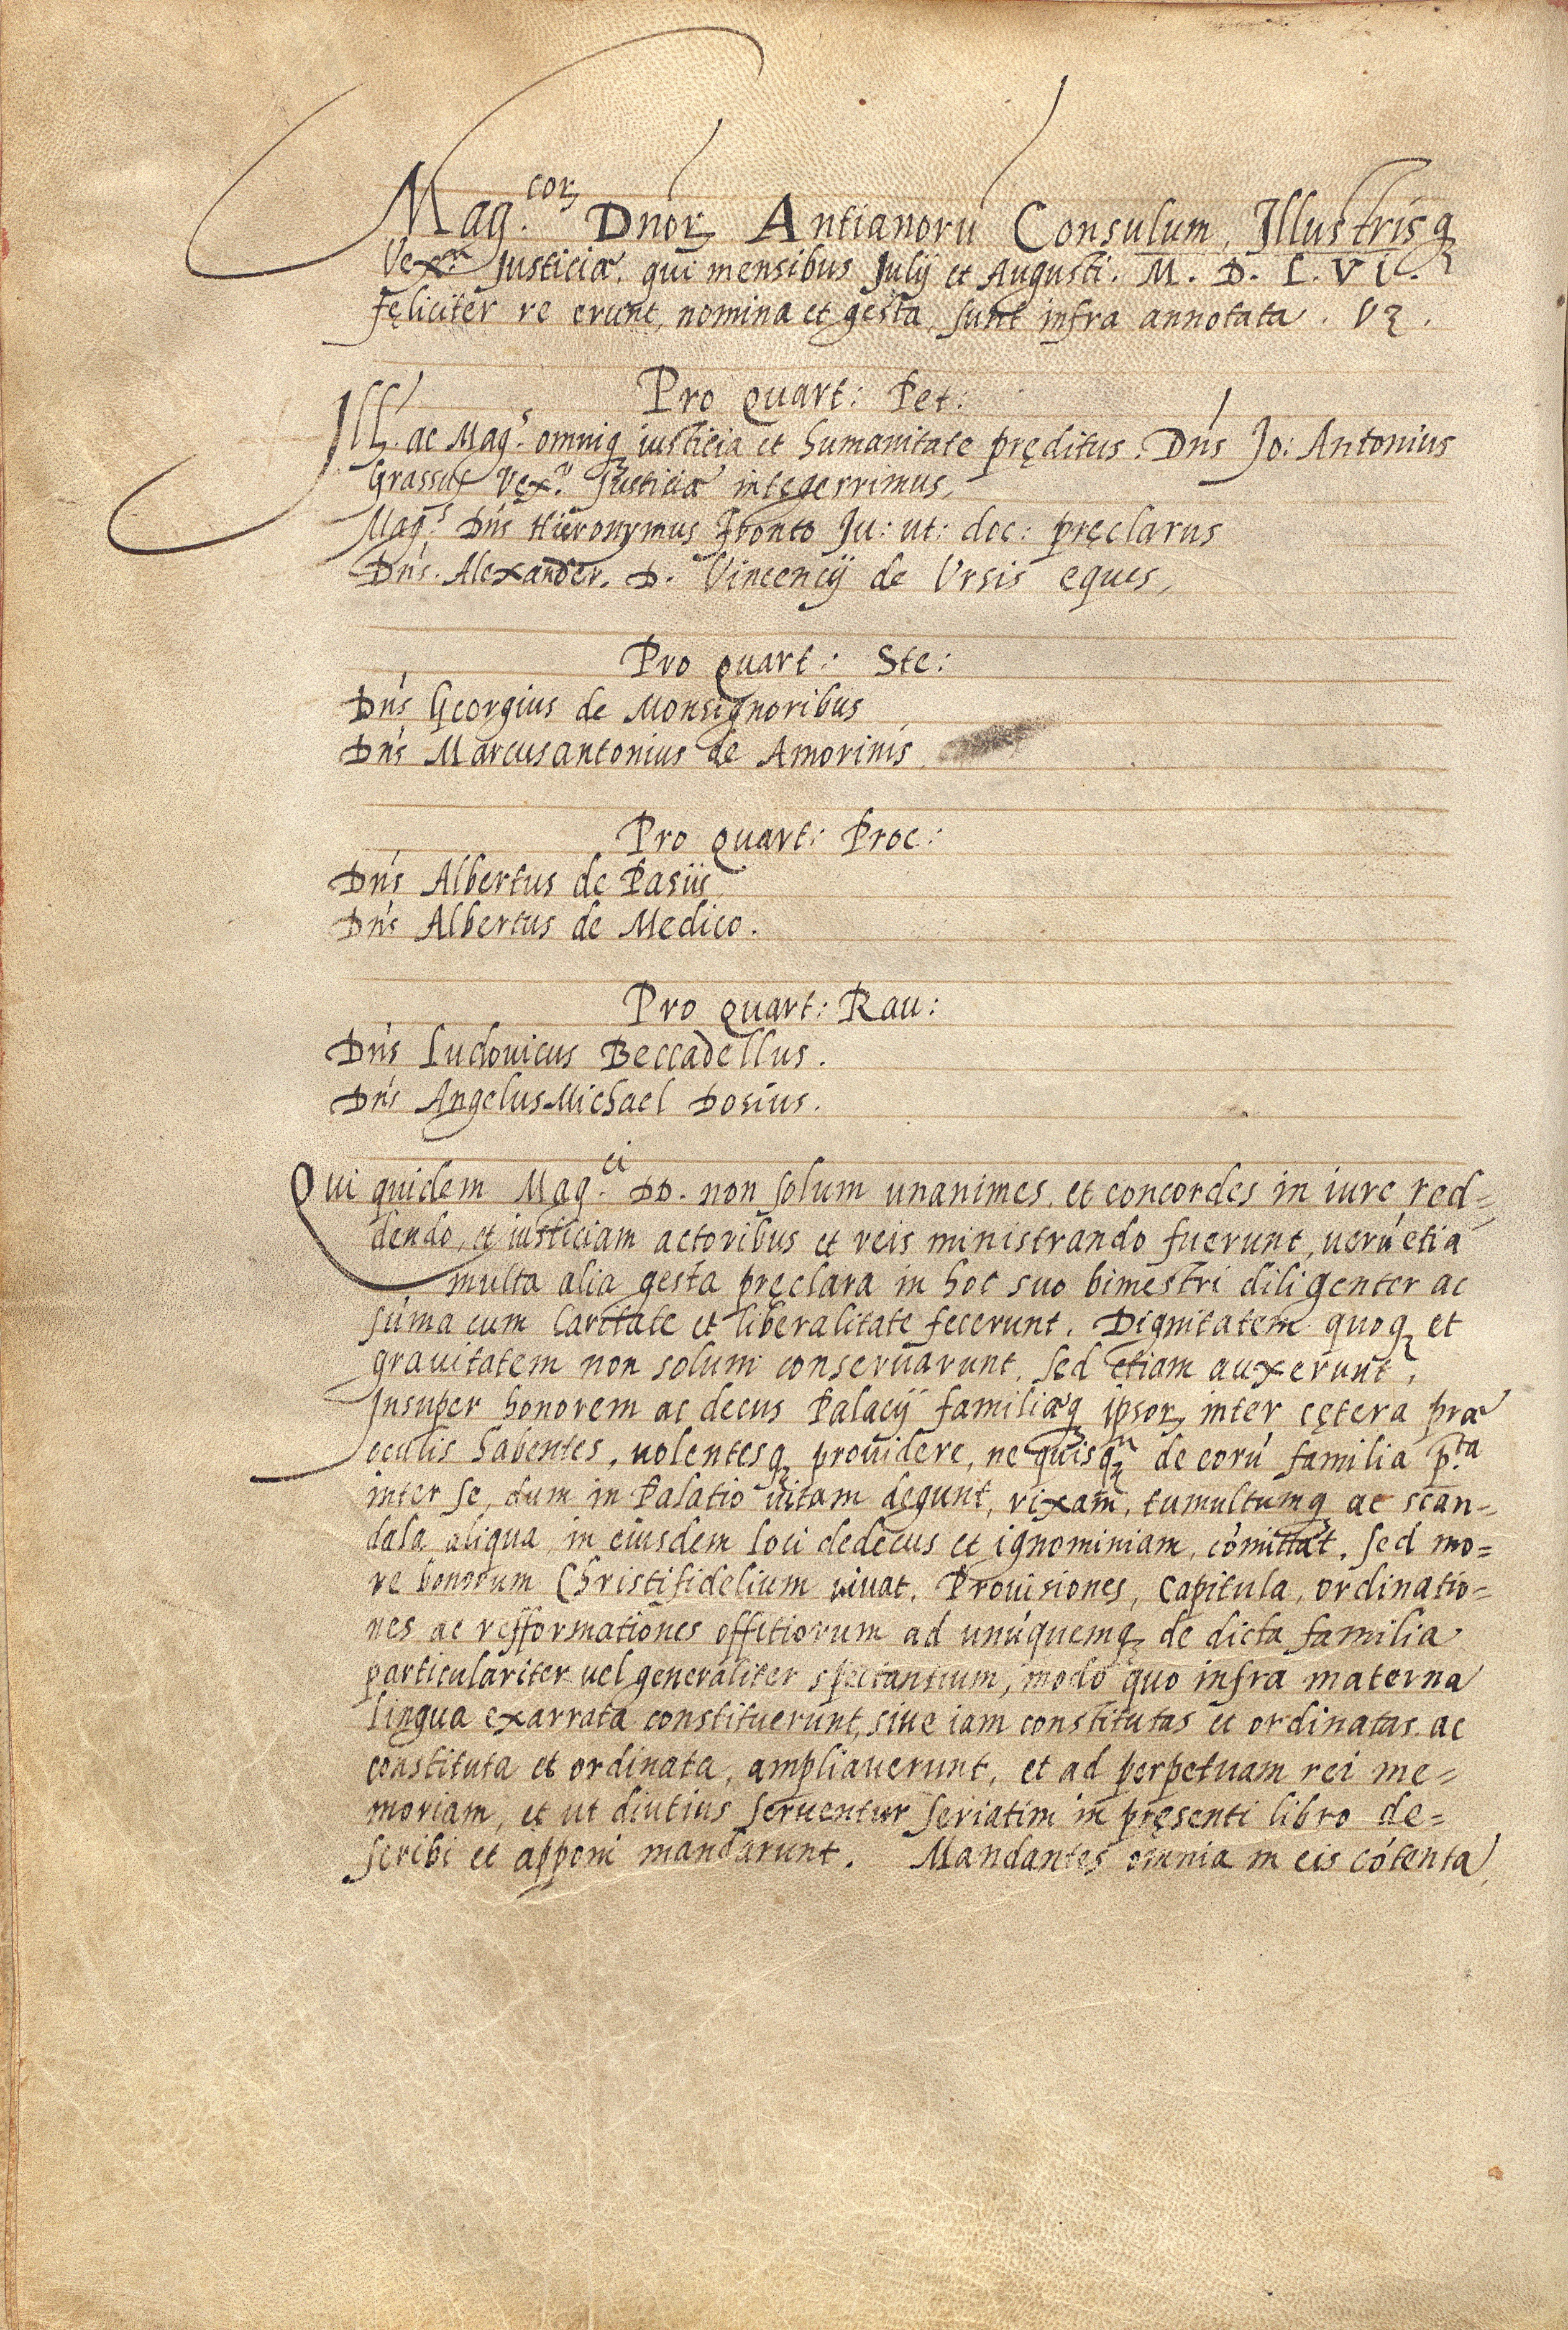 Mag.coꝝ Dnoꝝ Antianorū Consulum, Illustrisq
Vex.ri Justiciæ, qui mensibus Julij et Augusti. M. D. L. VI.
feliciter re erunt, nomina et gesta, sunt infra annotata. Vꝫ.
Pro Quart: Pet:
Ill. ac Mag.s omniq iusticia et humanitate pręditus. Dn̄s Jo: Antonius
Grassus Vex.r Justiciæ integerrimus,
Mag.s Dn̄s Hieronymus Fronto Ju: ut: doc: pręclarus
Dn̄s. Alexander. D. Vincencij de Ursis eques,
Pro Quart: Ste:
Dn̄s Georgius de Monsignoribus
Dn̄s Marcusantonius de Amorinis,
Pro Quart: Proc:
Dn̄s Albertus de Pasiis,
Dn̄s Albertus de Medico.
Pro Quart: Rau:
Dn̄s Ludovicus Beccadellus.
Dn̄s AngelusMichael Dosius.
Qui quidem Mag.ci DD. non solum unanimes, et concordes in iure red=
dendo, et iusticiam actoribus et reis ministrando fuerunt, uerū etiā
multa alia gesta pręclara in hoc suo bimestri diligenter ac
sūma cum Caritate et liberalitate fecerunt. Dignitatem quoq et
grauitatem non solum conseruarunt, sed etiam auxerunt,
Insuper honorem ac decus Palacij familiæq ipsoꝝ inter cętera præ
oculis habentes, uolentesq prouidere, ne quisq̄ de eorū familia p.ta
inter se, dum in Palatio uitam degunt, rixam, tumultumq ac scan=
dala aliqua in eiusdem loci dedecus et ignominiam, cōmittat, sed mo=
re bonorum Christifidelium uiuat, Prouisiones, Capitula, ordinatio=
nes ac refformationes offitiorum ad unūquemq de dicta familia
particulariter uel generaliter spectantium, modo quo infra materna
lingua exarrata constituerunt, siue iam constitutas et ordinatas ac
constituta et ordinata, ampliauerunt, et ad perpetuam rei me=
moriam, et ut diutius seruentur seriatim in pręsenti libro de=
scribi et apponi mandarunt. Mandantes omnia in eis cōtenta,